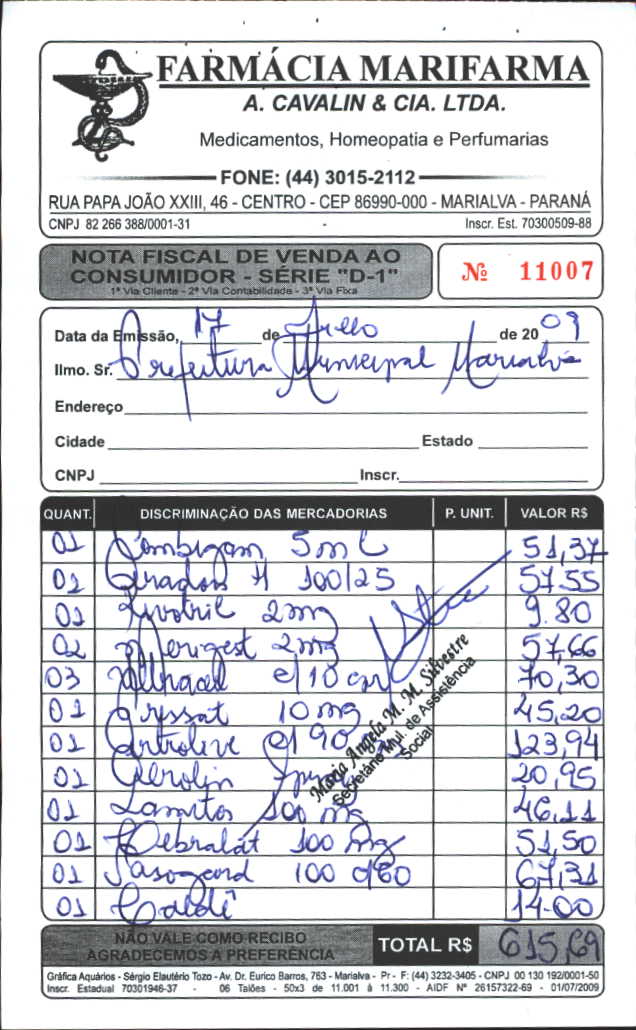 FARMÁCIA MARIFARMA
A. CAVALIN & CIA. LTDA.
Medicamentos, Homeopatia e Perfumarias
FONE: (44) 3015-2112
RUA PAPA JOÃO XXIII, 46 - CENTRO - CEP 86990-000 - MARIALVA - PARANÁ
CNPJ 82 266 388/0001-31 Inscr. Est. 70300509-88
NOTA FISCAL DE VENDA AO
CONSUMIDOR - SÉRIE "D-1"
1ª Via Cliente - 2ª Via Contabilidade - 3ª Via Fixa
Nº 11007
Data da Emissão, 17 de Julho de 2009
Ilmo. Sr. Prefeitura Municipal Marialva
Endereço
Cidade Estado
CNPJ Inscr.
QUANT. DISCRIMINAÇÃO DAS MERCADORIAS P. UNIT. VALOR R$
01 Combigan 5ml 51,37
01 100/25 57.55
01 Rivotril 2mg 9.80
02 Merigest 2mg 57,66
03 c/10 70,30
01 10mg 45,20
01 Artrolive c/ 90 123,94
01 20,95
01 100 mg 46,11
01 Cebralat 100 mg 51,50
01 Vasogard 100 c/60 67,31
01 Caldê 14.00
Maria Angela M. M. Silvestre
Secretária Mul. de Assistência
Social
NÃO VALE COMO RECIBO
AGRADECEMOS A PREFERÊNCIA
TOTAL R$ 615,69
Gráfica Aquários - Sérgio Elautério Tozo - Av. Dr. Eurico Barros, 763 - Marialva - Pr - F: (44) 3232-3405 - CNPJ 00 130 192/0001-50
Inscr. Estadual 70301946-37 - 06 Talões - 50x3 de 11.001 à 11.300 - AIDF Nº 26157322-69 - 01/07/2009